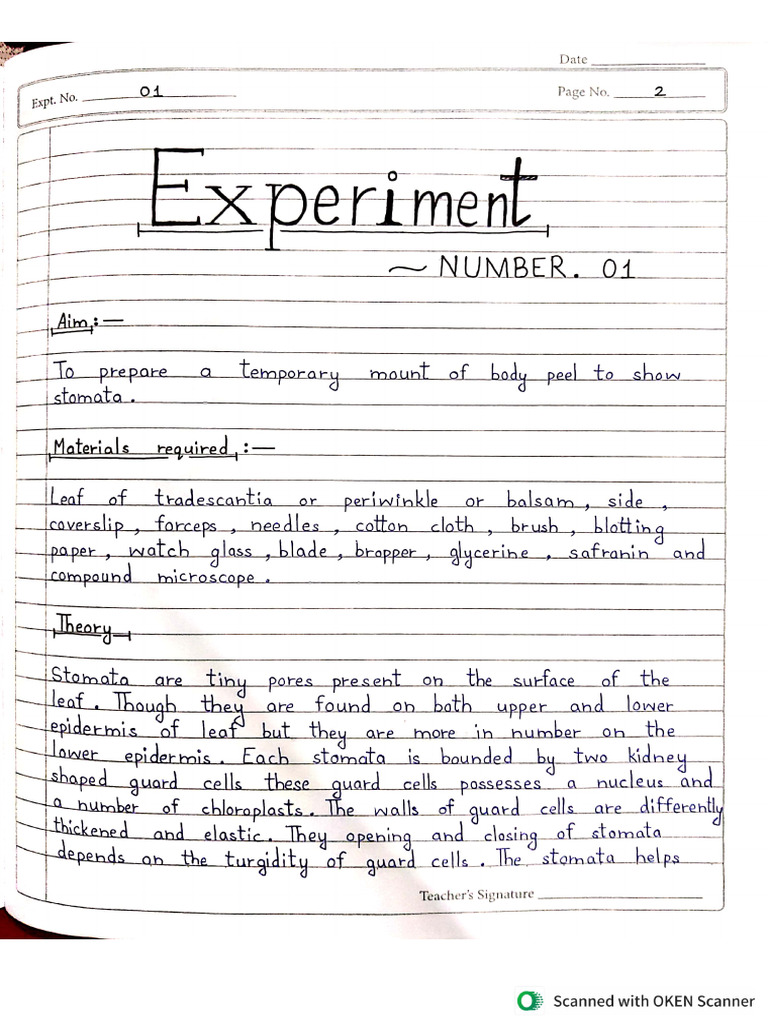 Date
Expt. No. 01
Page No. 2
Experiment
~ NUMBER. 01
Aim:—
To prepare a temporary mount of body peel to show
stomata.
Materials required:—
Leaf of tradescantia or periwinkle or balsam, side,
coverslip, forceps, needles, cotton cloth, brush, blotting
paper, watch glass, blade, bropper, glycerine, safranin and
compound microscope.
Theory
Stomata are tiny pores present on the surface of the
leaf. Though they are found on both upper and lower
epidermis of leaf but they are more in number on the
lower epidermis. Each stomata is bounded by two kidney
shaped guard cells these guard cells possesses a nucleus and
a number of chloroplasts. The walls of guard cells are differently
thickened and elastic. They opening and closing of stomata
depends on the turgidity of guard cells. The stomata helps
Teacher's Signature
Scanned with OKEN Scanner